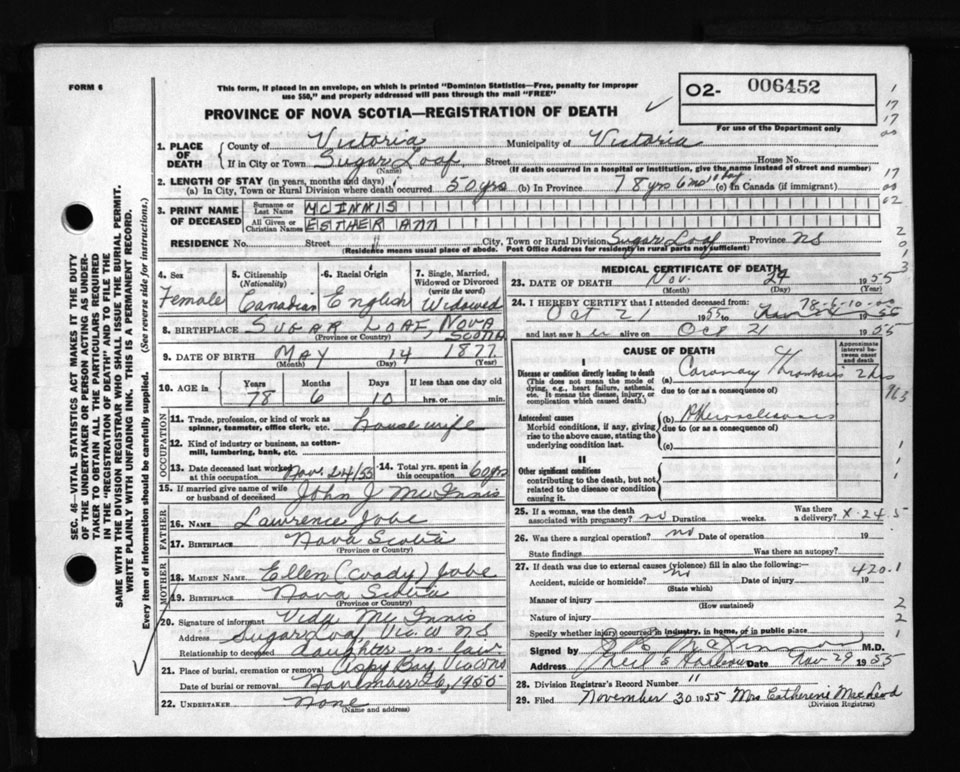 FORM 6
This form, if placed in an envelope, on which is printed "Dominion Statistics—Free, penalty for improper
use $50," and properly addressed will pass through the mail "FREE"
PROVINCE OF NOVA SCOTIA—REGISTRATION OF DEATH
O2- 006452
For use of the Department only
1. PLACE OF DEATH
County of Victoria Municipality of Victoria
If in City or Town Sugar Loaf Street House No.
(Name) (If death occurred in a hospital or institution, give the name instead of street and number)
2. LENGTH OF STAY (in years, months and days)
(a) In City, Town or Rural Division where death occurred 50 yrs (b) In Province 78 yrs 6 mo 10 day (c) In Canada (if immigrant)
3. PRINT NAME OF DECEASED
Surname or Last Name MCINNIS
All Given or Christian Names ESTHER ANN
RESIDENCE No. Street " City, Town or Rural Division Sugar Loaf Province NS
(Residence means usual place of abode. Post Office Address for residents in rural parts not sufficient)
4. Sex Female
5. Citizenship (Nationality) Canadian
6. Racial Origin English
7. Single, Married, Widowed or Divorced (write the word) Widowed
8. BIRTHPLACE SUGAR LOAF, NOVA SCOTIA
(Province or Country)
9. DATE OF BIRTH MAY 14 1877
(Month) (Day) (Year)
10. AGE IN Years Months Days If less than one day old
78 6 10 hrs. or min.
OCCUPATION
11. Trade, profession, or kind of work as spinner, teamster, office clerk, etc. house wife
12. Kind of industry or business, as cotton-mill, lumbering, bank, etc.
13. Date deceased last worked at this occupation Nov. 24/55 14. Total yrs. spent in this occupation 60 yrs
15. If married give name of wife or husband of deceased John J McInnis
FATHER
16. NAME Lawrence Jobe
17. BIRTHPLACE Nova Scotia
(Province or Country)
MOTHER
18. MAIDEN NAME Ellen (Coady) Jobe
19. BIRTHPLACE Nova Scotia
(Province or Country)
20. Signature of informant Vida McInnis
Address Sugar Loaf, Vic. Co NS
Relationship to deceased daughter-in-law
21. Place of burial, cremation or removal Aspy Bay, Vic Co NS
Date of burial or removal November 26, 1955
22. UNDERTAKER None
(Name and address)
MEDICAL CERTIFICATE OF DEATH
23. DATE OF DEATH Nov. 24 1955
(Month) (Day) (Year)
78-6-10-00
24. I HEREBY CERTIFY that I attended deceased from:
Oct 21 1955 to Nov 24 1955
and last saw h er alive on Oct 21 1955
CAUSE OF DEATH
Approximate interval between onset and death
I
Disease or condition directly leading to death
(This does not mean the mode of dying, e.g., heart failure, asthenia, etc. It means the disease, injury, or complication which caused death.)
(a) Coronary Thrombosis 2 hrs
due to (or as a consequence of)
Antecedent causes
Morbid conditions, if any, giving rise to the above cause, stating the underlying condition last.
(b)
due to (or as a consequence of)
(c)
II
Other significant conditions
contributing to the death, but not related to the disease or condition causing it.
25. If a woman, was the death associated with pregnancy? no Duration weeks. Was there a delivery? X-24 5
26. Was there a surgical operation? no Date of operation 19
State findings Was there an autopsy?
27. If death was due to external causes (violence) fill in also the following:—
Accident, suicide or homicide? no Date of injury 19
(State which)
420.1
Manner of injury
(How sustained)
Nature of injury
Specify whether injury occurred in industry, in home, or in public place
Signed by M.D.
Address Neil's Harbour Date Nov 29 1955
28. Division Registrar's Record Number 11
29. Filed November 30 1955 Mrs Catherine MacLeod
(Division Registrar)
SEC. 46—VITAL STATISTICS ACT MAKES IT THE DUTY
OF THE UNDERTAKER OR PERSON ACTING AS UNDER-
TAKER TO OBTAIN ALL THE PARTICULARS REQUIRED
IN THE "REGISTRATION OF DEATH" AND TO FILE THE
SAME WITH THE DIVISION REGISTRAR WHO SHALL ISSUE THE BURIAL PERMIT.
WRITE PLAINLY WITH UNFADING INK. THIS IS A PERMANENT RECORD.
Every item of information should be carefully supplied. (See reverse side for instructions.)
1
17
17
00
17
00
02
2
0
1
3
963
1
1
1
2
2
1